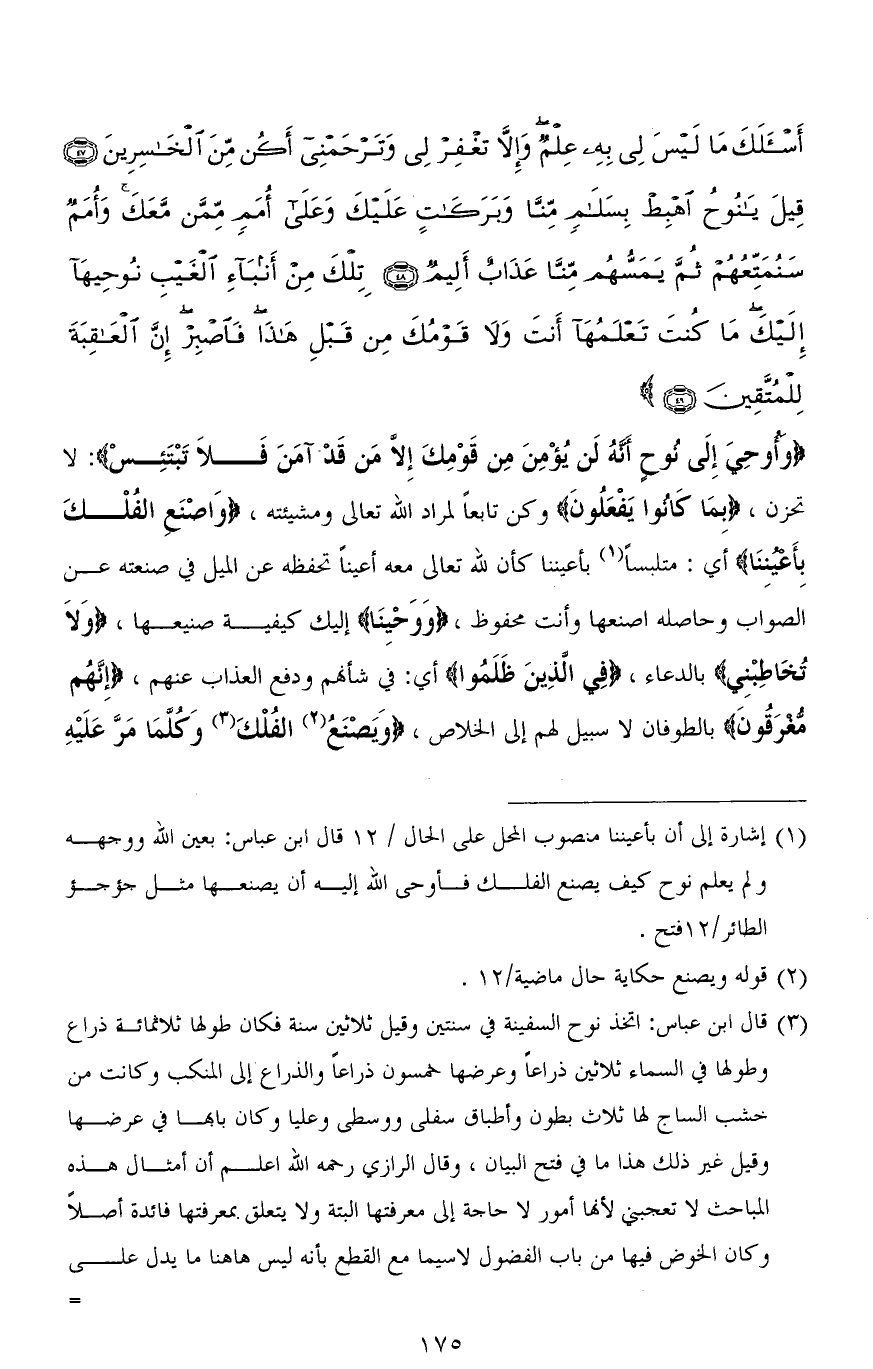 أَسْـَٔلَكَ مَا لَيْسَ لِى بِهِۦ عِلْمٌۖ وَإِلَّا تَغْفِرْ لِى وَتَرْحَمْنِىٓ أَكُن مِّنَ ٱلْخَـٰسِرِينَ ٤٧
قِيلَ يَـٰنُوحُ ٱهْبِطْ بِسَلَـٰمٍ مِّنَّا وَبَرَكَـٰتٍ عَلَيْكَ وَعَلَىٰٓ أُمَمٍ مِّمَّن مَّعَكَۚ وَأُمَمٌ
سَنُمَتِّعُهُمْ ثُمَّ يَمَسُّهُم مِّنَّا عَذَابٌ أَلِيمٌ ٤٨ تِلْكَ مِنْ أَنۢبَآءِ ٱلْغَيْبِ نُوحِيهَآ
إِلَيْكَۖ مَا كُنتَ تَعْلَمُهَآ أَنتَ وَلَا قَوْمُكَ مِن قَبْلِ هَـٰذَاۖ فَٱصْبِرْۖ إِنَّ ٱلْعَـٰقِبَةَ
لِلْمُتَّقِينَ ٤٩ ﴾
﴿وَأُوحِيَ إِلَى نُوحٍ أَنَّهُ لَن يُؤْمِنَ مِن قَوْمِكَ إِلاَّ مَن قَدْ آمَنَ فَلاَ تَبْتَئِسْ﴾: لا
تحزن ، ﴿بِمَا كَانُوا يَفْعَلُونَ﴾ وكن تابعاً لمراد الله تعالى ومشيئته ، ﴿وَاصْنَعِ الفُلْكَ
بِأَعْيُنِنَا﴾ أي : متلبساً(١) بأعيننا كأن لله تعالى معه أعيناً تحفظه عن الميل في صنعته عن
الصواب وحاصله اصنعها وأنت محفوظ ، ﴿وَوَحْيِنَا﴾ إليك كيفية صنيعها ، ﴿وَلاَ
تُخَاطِبْنِي﴾ بالدعاء ، ﴿فِي الَّذِينَ ظَلَمُوا﴾ أي: في شأنهم ودفع العذاب عنهم ، ﴿إِنَّهُم
مُّغْرَقُونَ﴾ بالطوفان لا سبيل لهم إلى الخلاص ، ﴿وَيَصْنَعُ(٢) الفُلْكَ(٣) وَكُلَّمَا مَرَّ عَلَيْهِ
(١) إشارة إلى أن بأعيننا منصوب المحل على الحال / ١٢ قال ابن عباس: بعين الله ووجهه
ولم يعلم نوح كيف يصنع الفلك فأوحى الله إليه أن يصنعها مثل جؤجؤ
الطائر/١٢فتح .
(٢) قوله ويصنع حكاية حال ماضية/١٢ .
(٣) قال ابن عباس: اتخذ نوح السفينة في سنتين وقيل ثلاثين سنة فكان طولها ثلاثمائة ذراع
وطولها في السماء ثلاثين ذراعاً وعرضها خمسون ذراعاً والذراع إلى المنكب وكانت من
خشب الساج لها ثلاث بطون وأطباق سفلى ووسطى وعليا وكان بابها في عرضها
وقيل غير ذلك هذا ما في فتح البيان ، وقال الرازي رحمه الله اعلم أن أمثال هذه
المباحث لا تعجبني لأنها أمور لا حاجة إلى معرفتها البتة ولا يتعلق بمعرفتها فائدة أصلاً
وكان الخوض فيها من باب الفضول لاسيما مع القطع بأنه ليس هاهنا ما يدل على
=
١٧٥